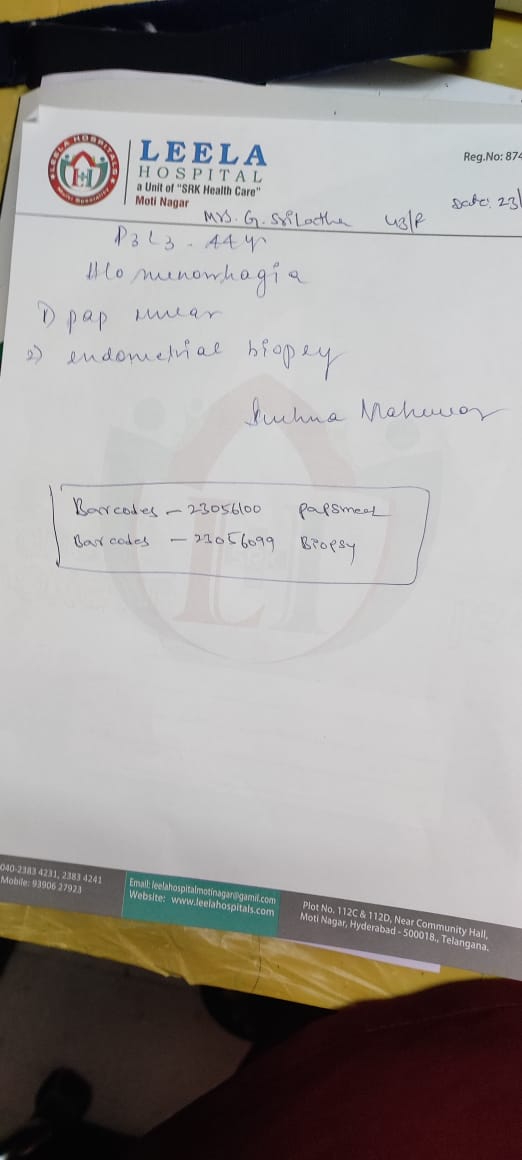 LEELA HOSPITALS
Multi Speciality
LEELA
HOSPITAL
a Unit of "SRK Health Care"
Moti Nagar
Reg.No: 874
Date: 23/
Mrs. G. Srilatha 43/F
P3L3 - 44 yr
H/o menorrhagia
1) pap smear
2) endometrial biopsy
Barcodes - 23056100 Papsmeal
Barcodes - 23056099 Biopsy
040-2383 4231, 2383 4241
Mobile: 93906 27923
Email: leelahospitalmotinagar@gamil.com
Website: www.leelahospitals.com
Plot No. 112C & 112D, Near Community Hall,
Moti Nagar, Hyderabad - 500018., Telangana.